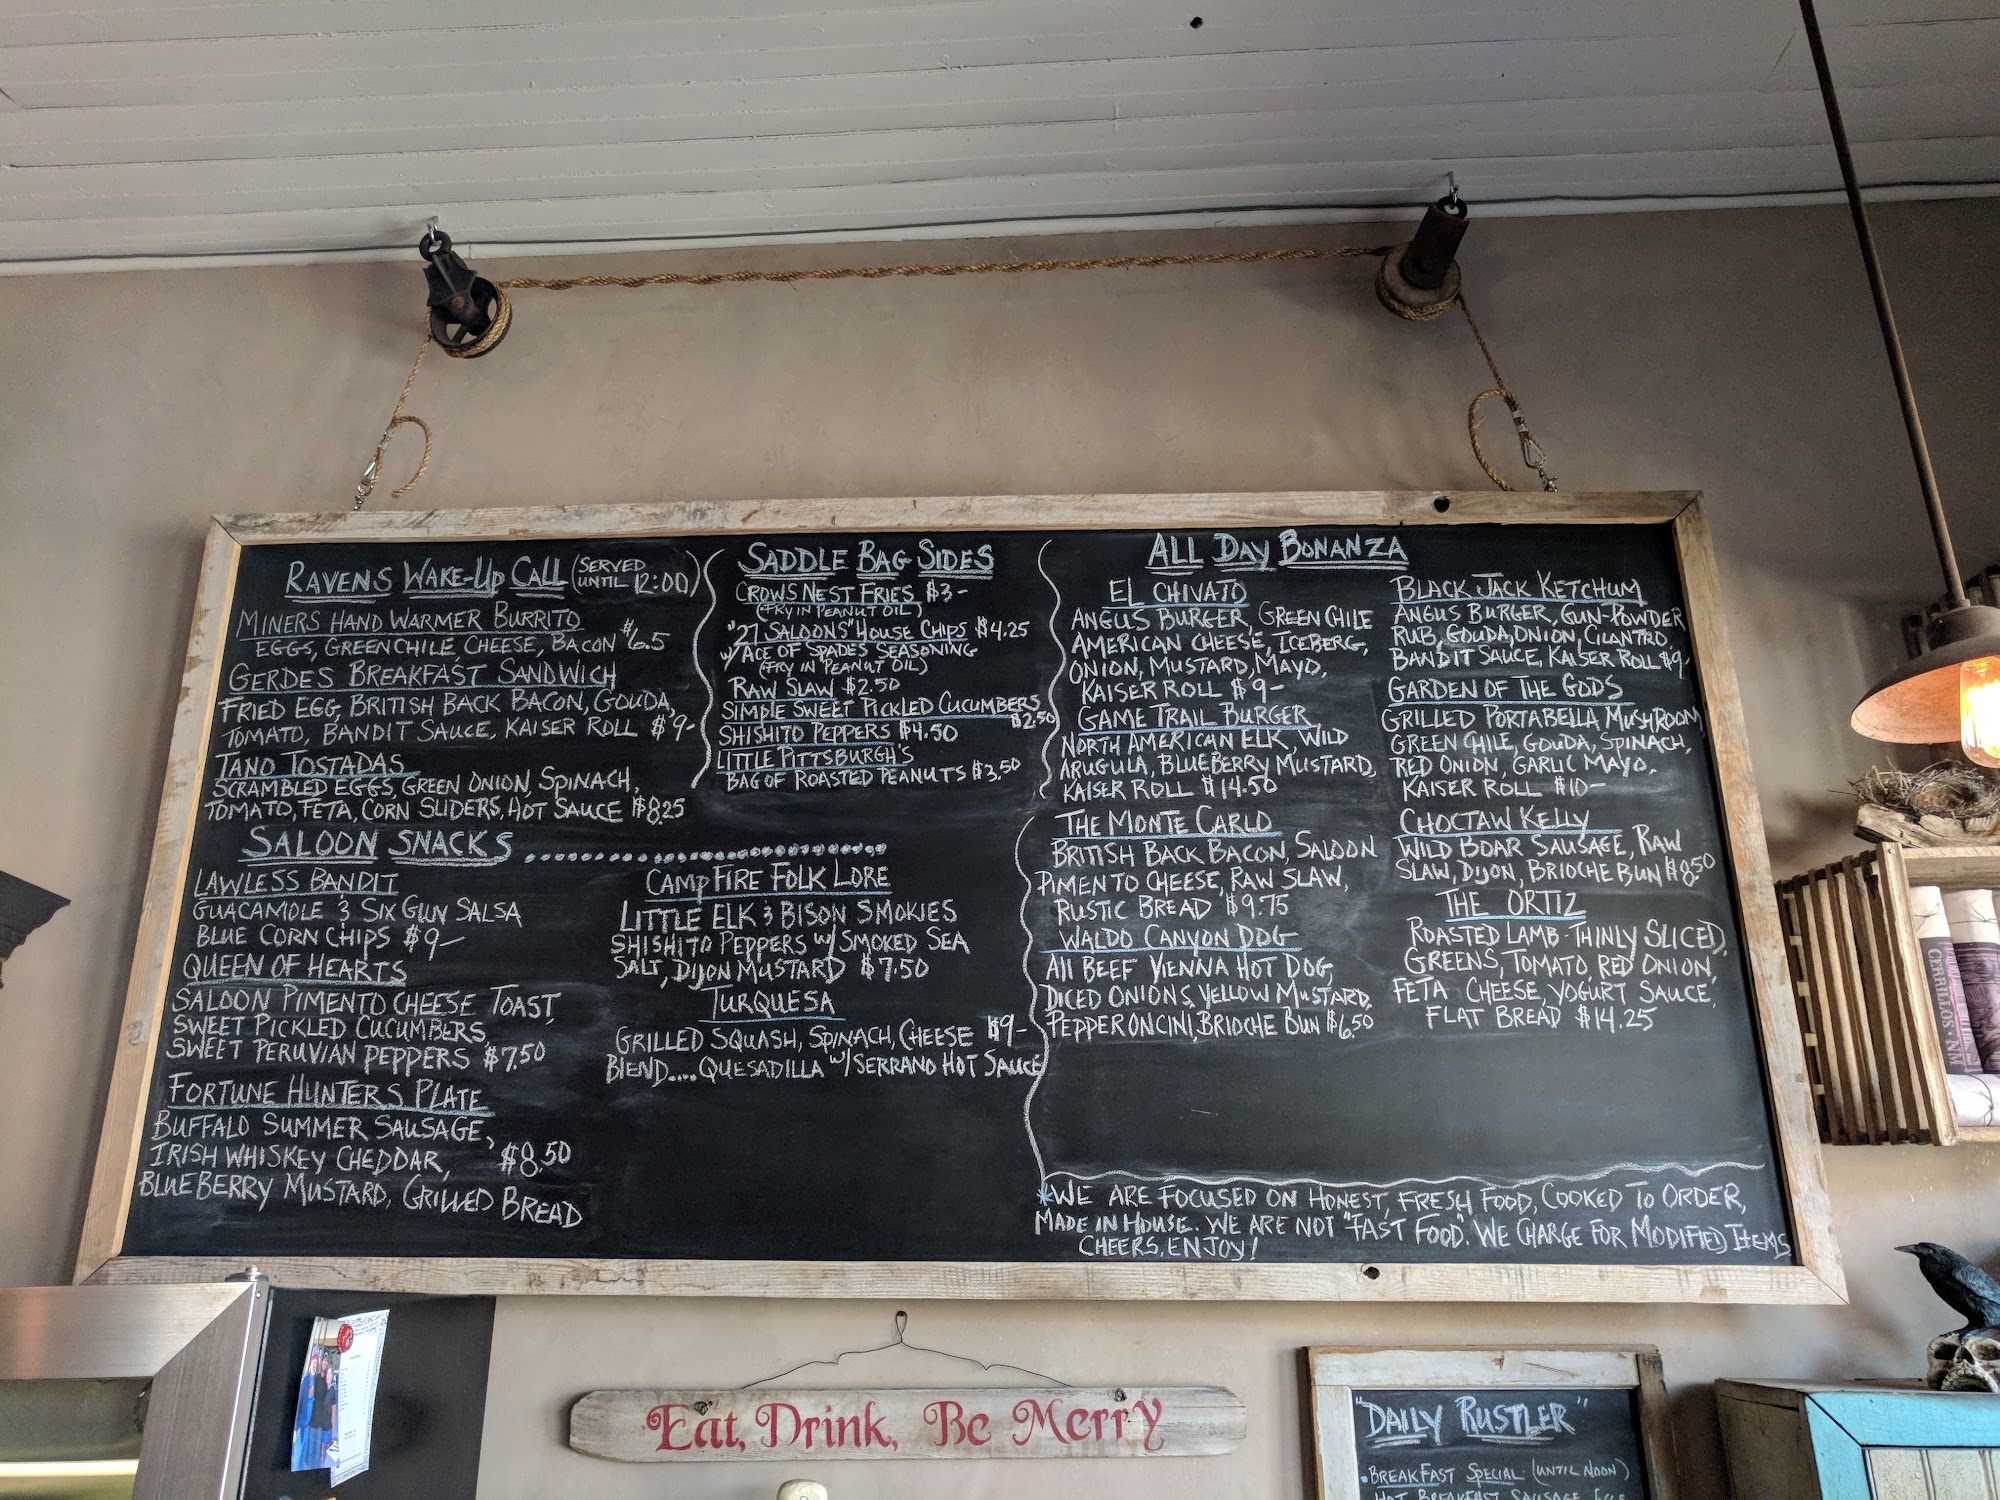 RAVENS WAKE-UP CALL (SERVED UNTIL 12:00)
MINERS HAND WARMER BURRITO
EGGS, GREEN CHILE, CHEESE, BACON $6.5
GERDES BREAKFAST SANDWICH
FRIED EGG, BRITISH BACK BACON, GOUDA,
TOMATO, BANDIT SAUCE, KAISER ROLL $9-
TANO TOSTADAS
SCRAMBLED EGGS, GREEN ONION, SPINACH,
TOMATO, FETA, CORN SLIDERS, HOT SAUCE $8.25
SADDLE BAG SIDES
CROWS NEST FRIES $3-
(FRY IN PEANUT OIL)
"27 SALOONS" HOUSE CHIPS $4.25
W/ ACE OF SPADES SEASONING
(FRY IN PEANUT OIL)
RAW SLAW $2.50
SIMPLE SWEET PICKLED CUCUMBERS
$2.50
SHISHITO PEPPERS $4.50
LITTLE PITTSBURGH'S
BAG OF ROASTED PEANUTS $3.50
SALOON SNACKS
LAWLESS BANDIT
GUACAMOLE & SIX GUN SALSA
BLUE CORN CHIPS $9-
QUEEN OF HEARTS
SALOON PIMENTO CHEESE TOAST,
SWEET PICKLED CUCUMBERS,
SWEET PERUVIAN PEPPERS $7.50
FORTUNE HUNTERS PLATE
BUFFALO SUMMER SAUSAGE,
IRISH WHISKEY CHEDDAR, $8.50
BLUEBERRY MUSTARD, GRILLED BREAD
CAMPFIRE FOLK LORE
LITTLE ELK & BISON SMOKIES
SHISHITO PEPPERS W/ SMOKED SEA
SALT, DIJON MUSTARD $7.50
TURQUESA
GRILLED SQUASH, SPINACH, CHEESE $9-
BLEND.... QUESADILLA W/ SERRANO HOT SAUCE
ALL DAY BONANZA
EL CHIVATO
ANGUS BURGER, GREEN CHILE
AMERICAN CHEESE, ICEBERG,
ONION, MUSTARD, MAYO,
KAISER ROLL $9-
GAME TRAIL BURGER
NORTH AMERICAN ELK, WILD
ARUGULA, BLUEBERRY MUSTARD,
KAISER ROLL $14.50
THE MONTE CARLO
BRITISH BACK BACON, SALOON
PIMENTO CHEESE, RAW SLAW,
RUSTIC BREAD $9.75
WALDO CANYON DOG
All BEEF VIENNA HOT DOG,
DICED ONIONS, YELLOW MUSTARD,
PEPPERONCINI, BRIOCHE BUN $6.50
BLACK JACK KETCHUM
ANGUS BURGER, GUN-POWDER
RUB, GOUDA, ONION, CILANTRO,
BANDIT SAUCE, KAISER ROLL $9-
GARDEN OF THE GODS
GRILLED PORTABELLA MUSHROOM,
GREEN CHILE, GOUDA, SPINACH,
RED ONION, GARLIC MAYO,
KAISER ROLL $10-
CHOCTAW KELLY
WILD BOAR SAUSAGE, RAW
SLAW, DIJON, BRIOCHE BUN $8.50
THE ORTIZ
ROASTED LAMB-THINLY SLICED,
GREENS, TOMATO, RED ONION,
FETA CHEESE, YOGURT SAUCE,
FLAT BREAD $14.25
*WE ARE FOCUSED ON HONEST, FRESH FOOD, COOKED TO ORDER,
MADE IN HOUSE. WE ARE NOT "FAST FOOD". WE CHARGE FOR MODIFIED ITEMS
CHEERS, ENJOY!
CERRILLOS, NM
Eat, Drink, Be Merry
"DAILY RUSTLER"
• BREAKFAST SPECIAL (UNTIL NOON)
HOT BREAKFAST SAUSAGE, EGGS